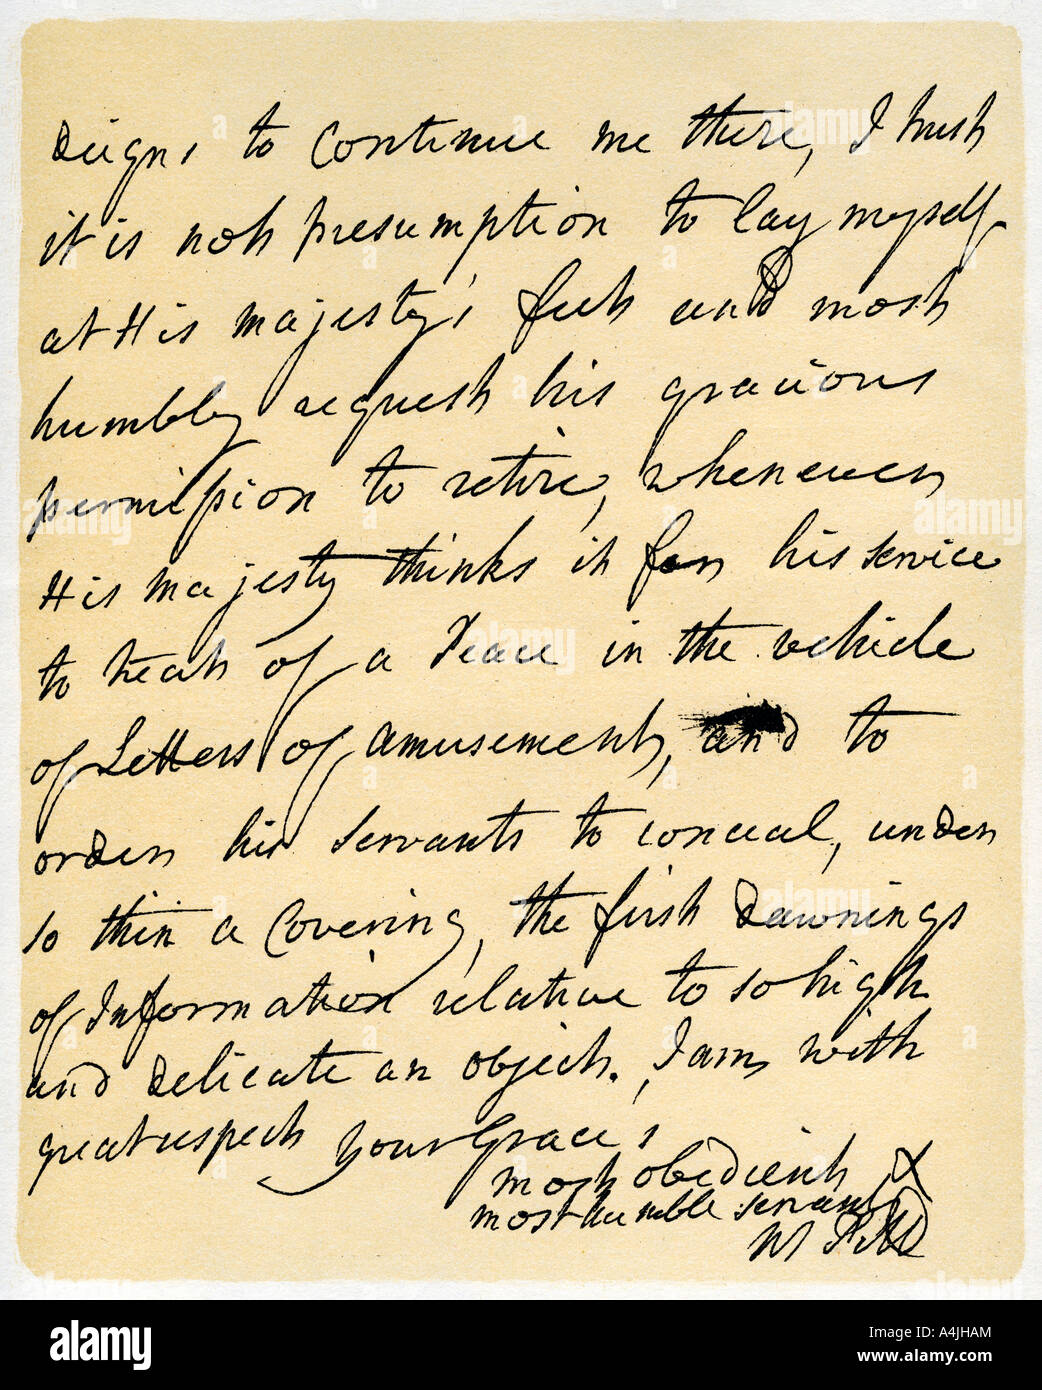 Deigns to continue me there, I trust
it is not presumption to lay myself
at His majesty's feet and most
humbly request his gracious
permission to retire, whenever
His majesty thinks it for his service
to treat of a Peace in the vehicle
of Letters of amusement, and to
order his servants to conceal, under
so thin a Covering, the first Dawnings
of Information relative to so high
and Delicate an object. I am, with
great respect your Grace's
most obedient &
most humble servant
W Pitt
alamy
Image ID: A4JHAM
www.alamy.com